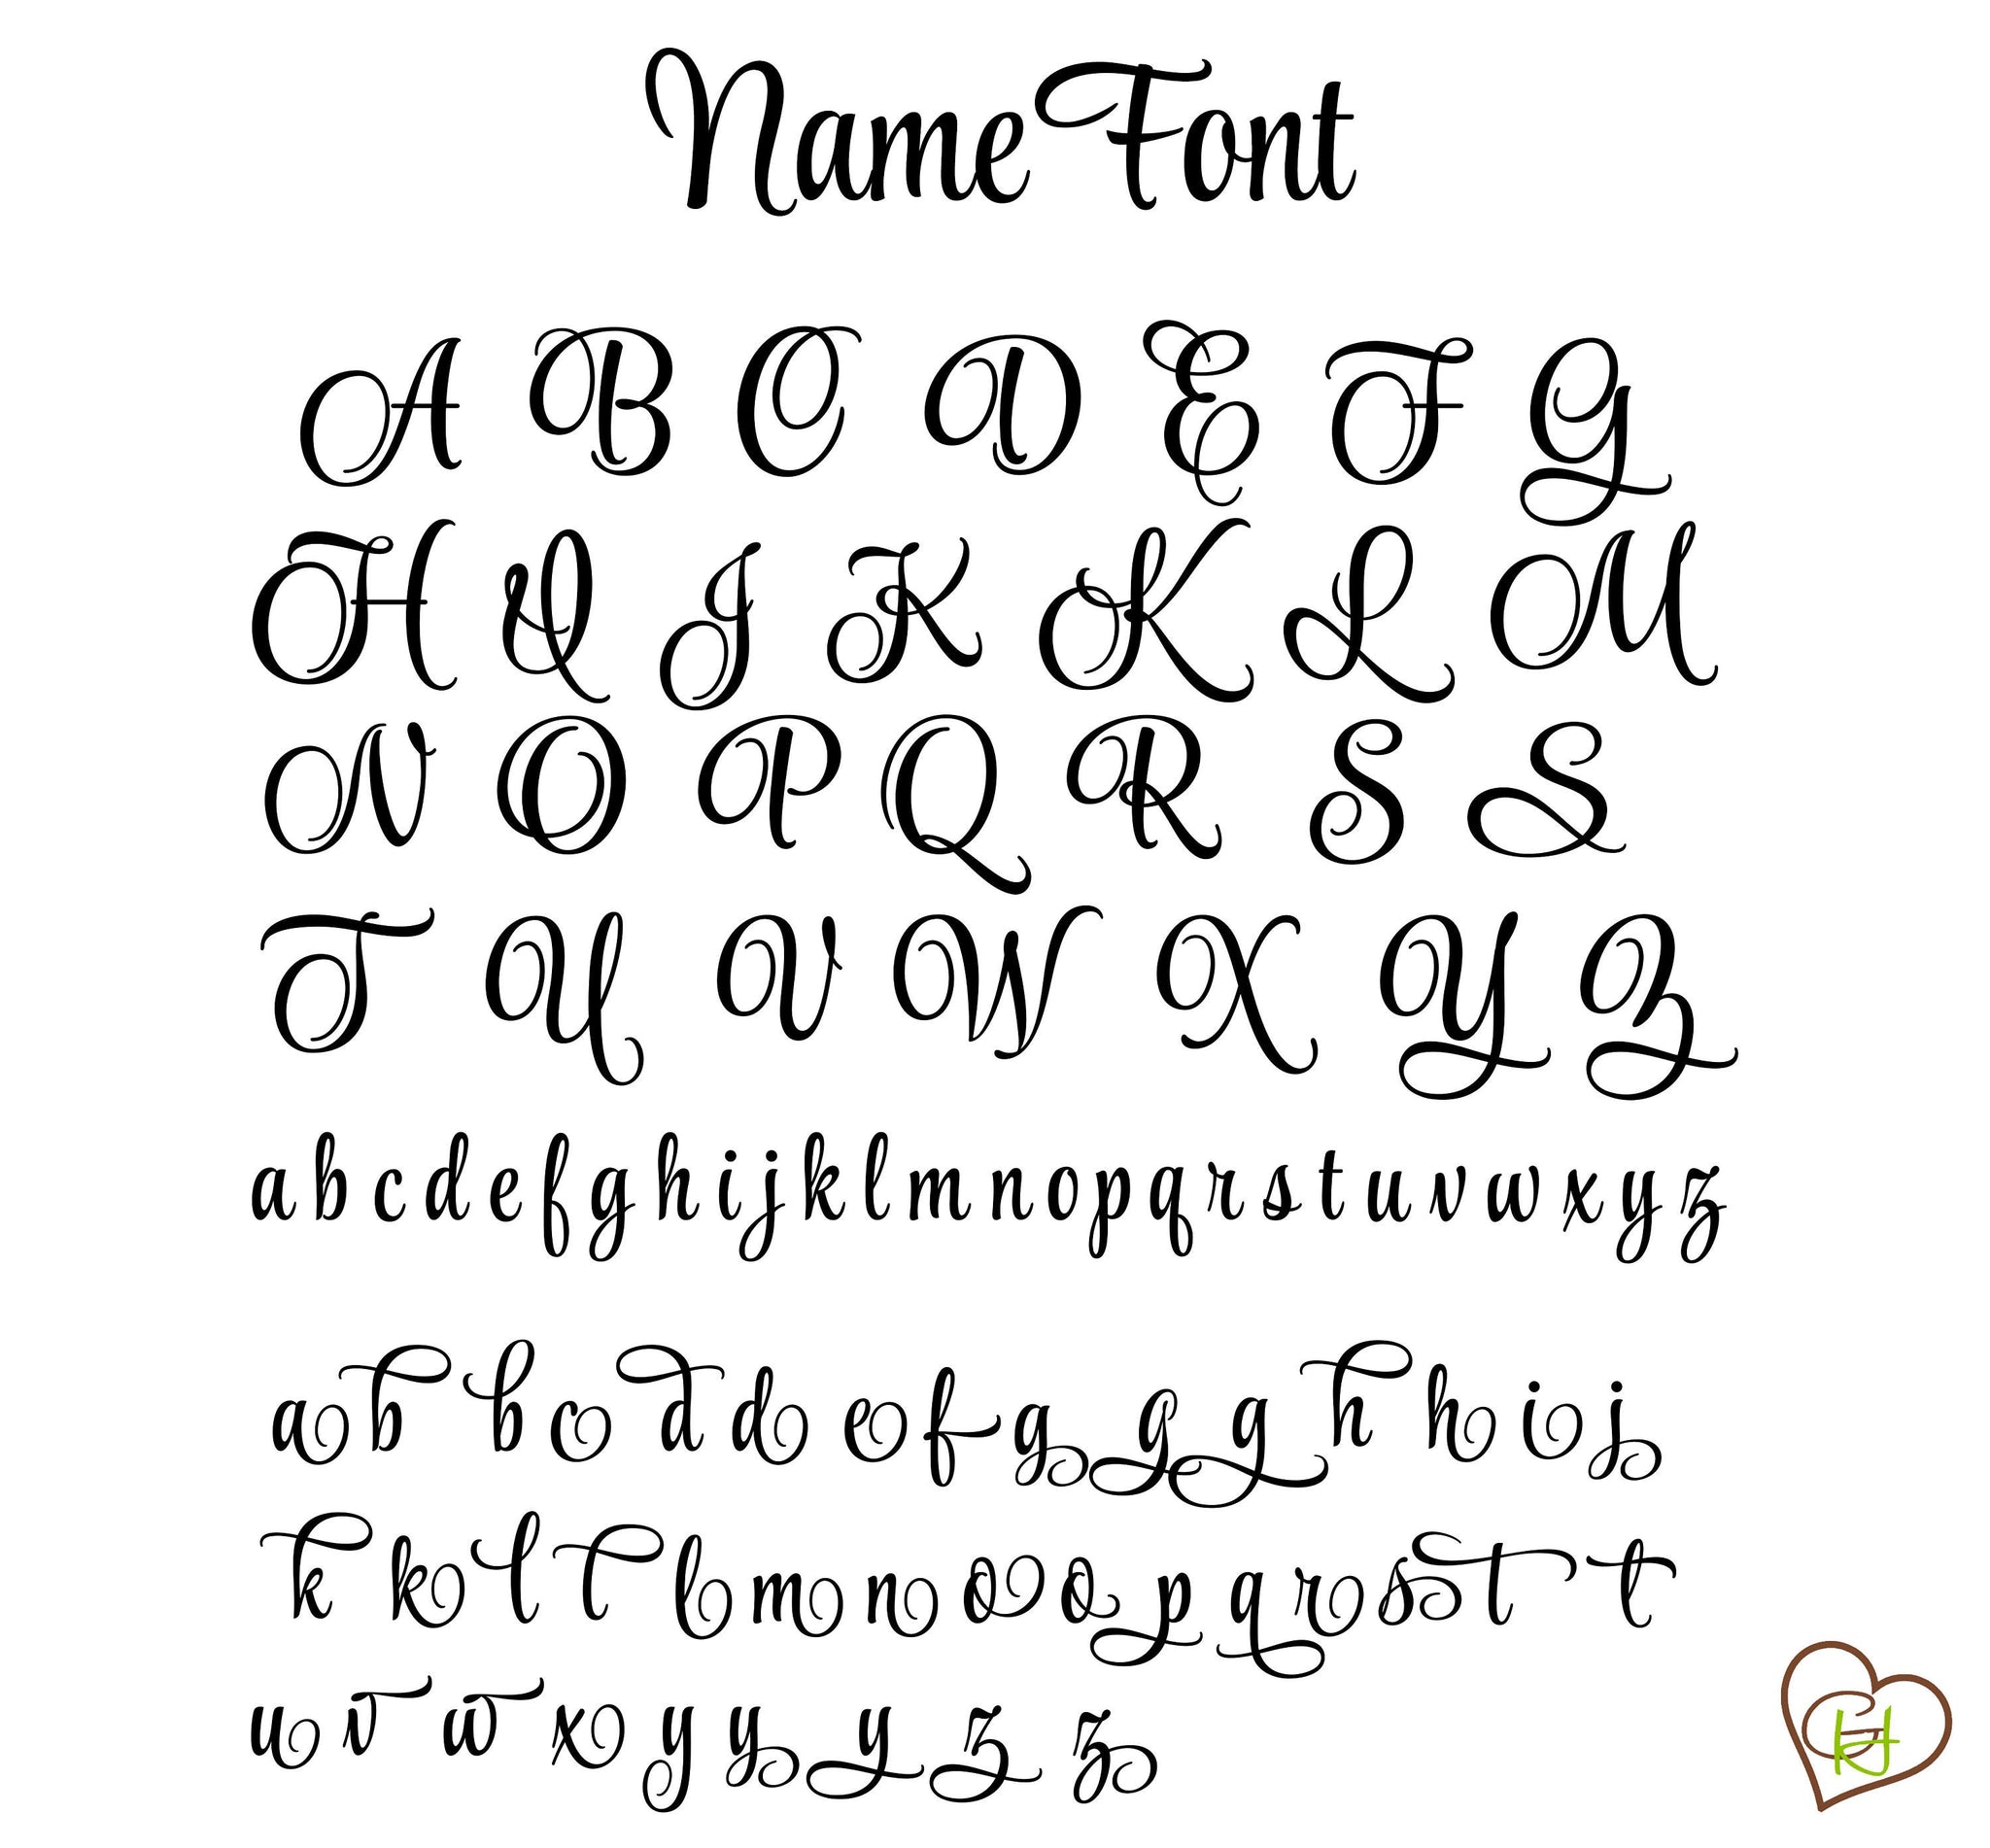 Name Font
A B C D E F G
H I J K K L M
N O P Q R S S
T U V W X Y Z
a b c d e f g h i j k l m n o p q r s t u v w x y z
a b b c d d e f g g g h h i j
k k l l l m n o o p q r s t t
u v w x y y y z z